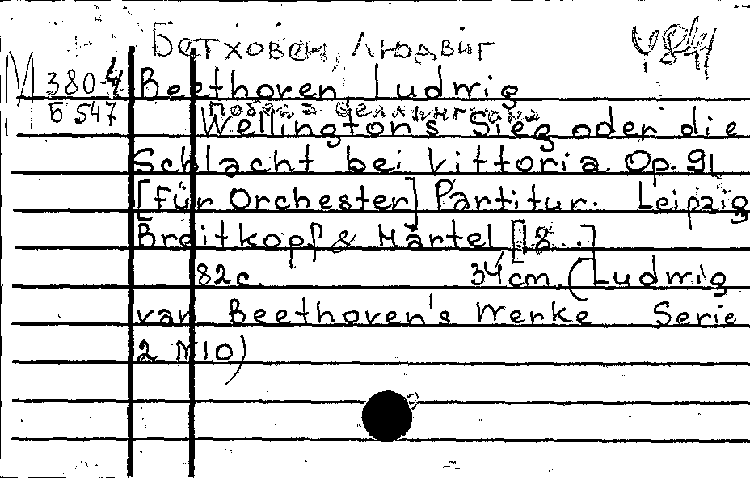 Бетховен, Людвиг
М 380-4 Beethoven Ludwig
Б 547 Победа Веллингтона
Wellington's Sieg oder die
Schlacht bei Vittoria. Op. 91
[für Orchester] Partitur. Leipzig
Breitkopf & Härtel [18..]
82 c. 34 cm. (Ludwig
van Beethoven's Werke Serie
2 N 10)